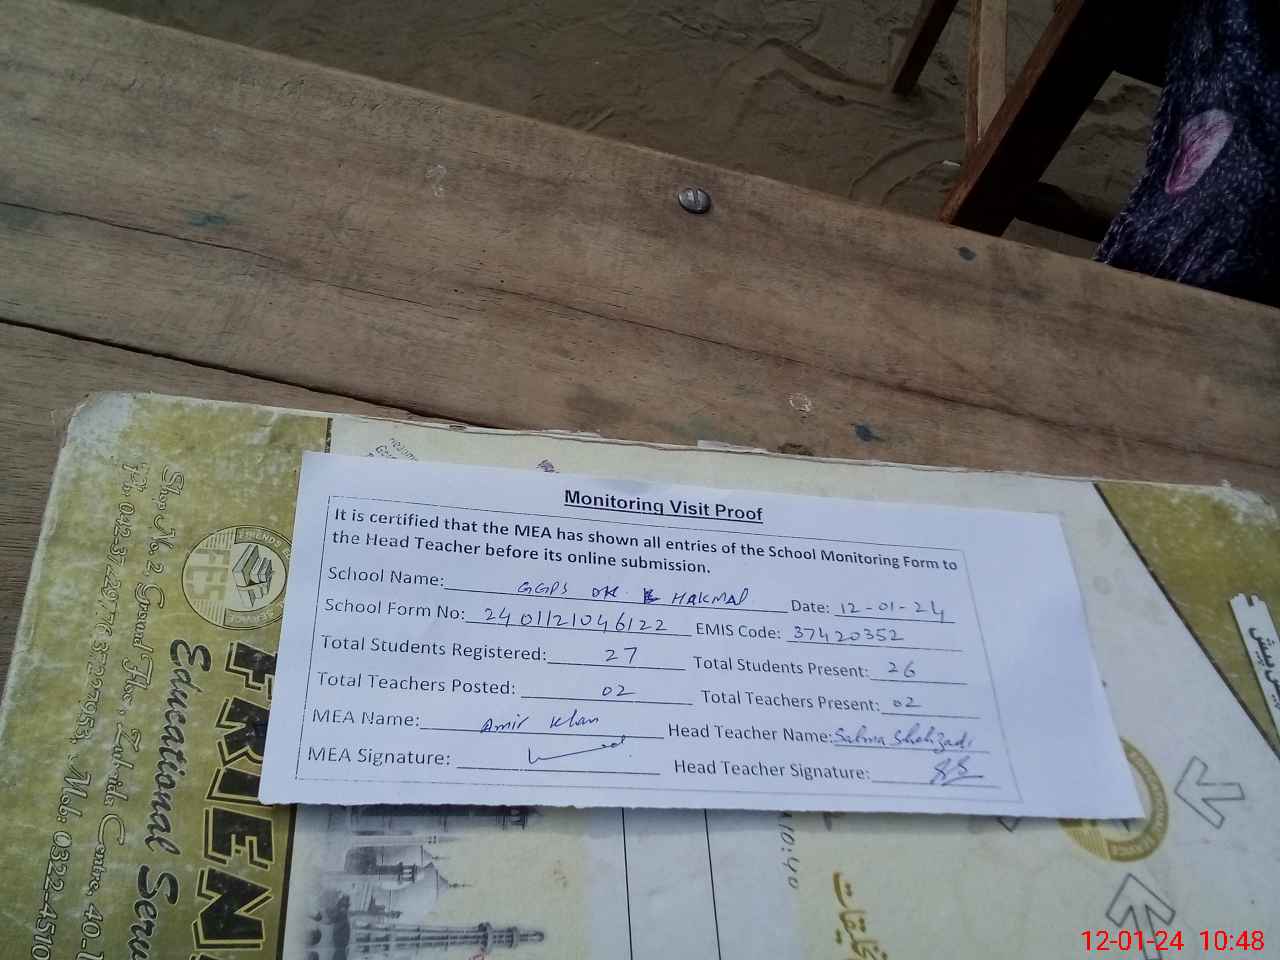 Monitoring Visit Proof
It is certified that the MEA has shown all entries of the School Monitoring Form to
the Head Teacher before its online submission.
School Name: GGPS HAKMAD Date: 12-01-24
School Form No: 2401121046122 EMIS Code: 37420352
Total Students Registered: 27 Total Students Present: 26
Total Teachers Posted: 02 Total Teachers Present: 02
MEA Name: Amir Khan Head Teacher Name: Salma Shahzadi
MEA Signature: Head Teacher Signature:
Shop No. 2, Ground Floor, Zubaida Centre, 40-
FRIENDS
FES
SERVICE
FRIEN
Educational Serv
12-01-24 10:48